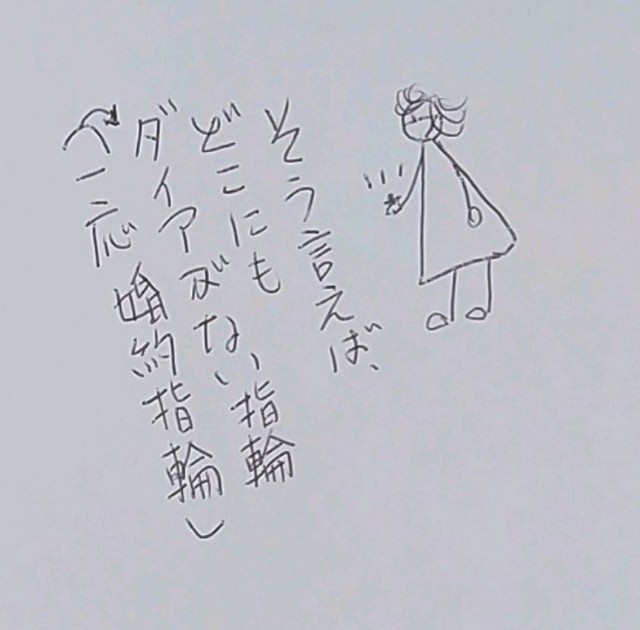 そう言えば、
どこにも
ダイアがない指輪
(一応 婚約指輪)